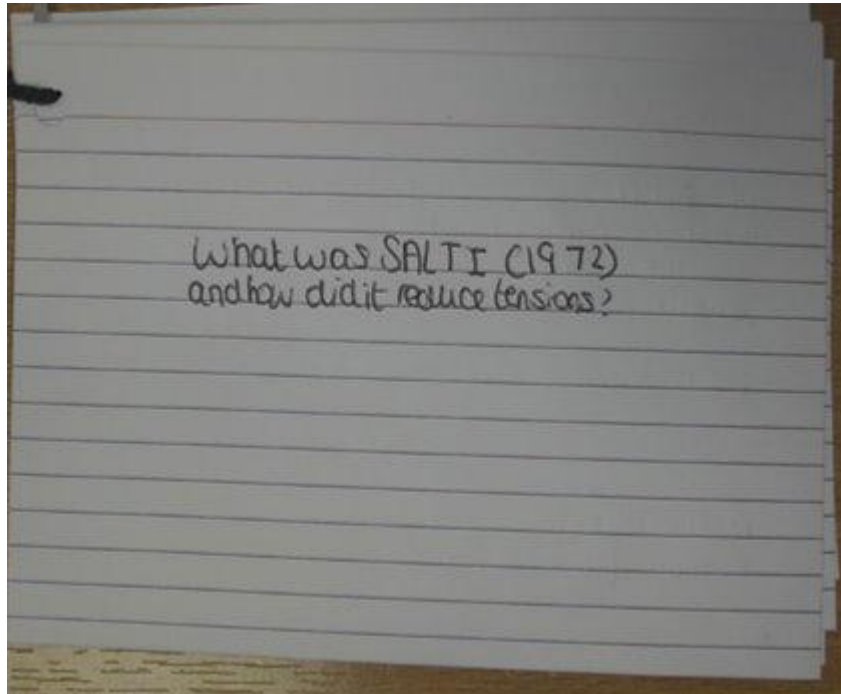 What was SALT I (1972)
and how did it reduce tensions?